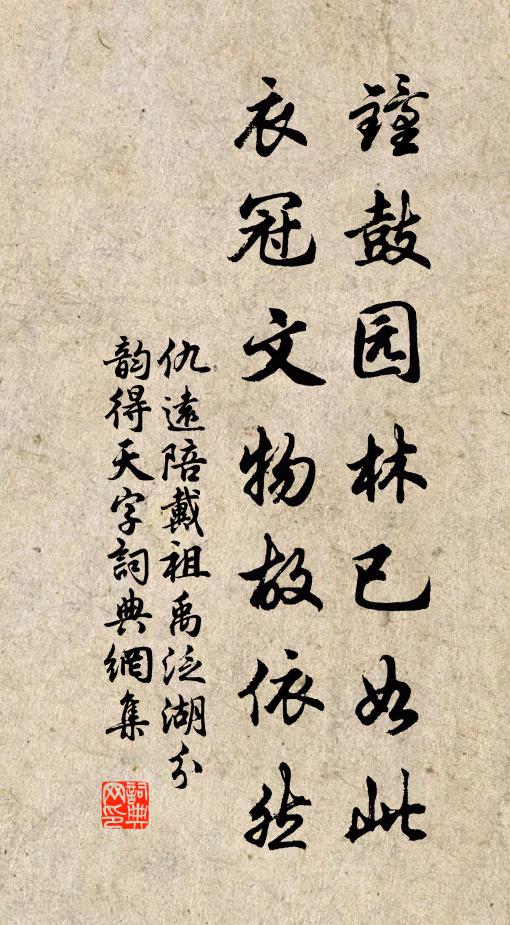 鐘鼓园林已如此
衣冠文物故依然
仇遠陪戴祖禹泛湖分
韵得天字詞典網集
詞典网印